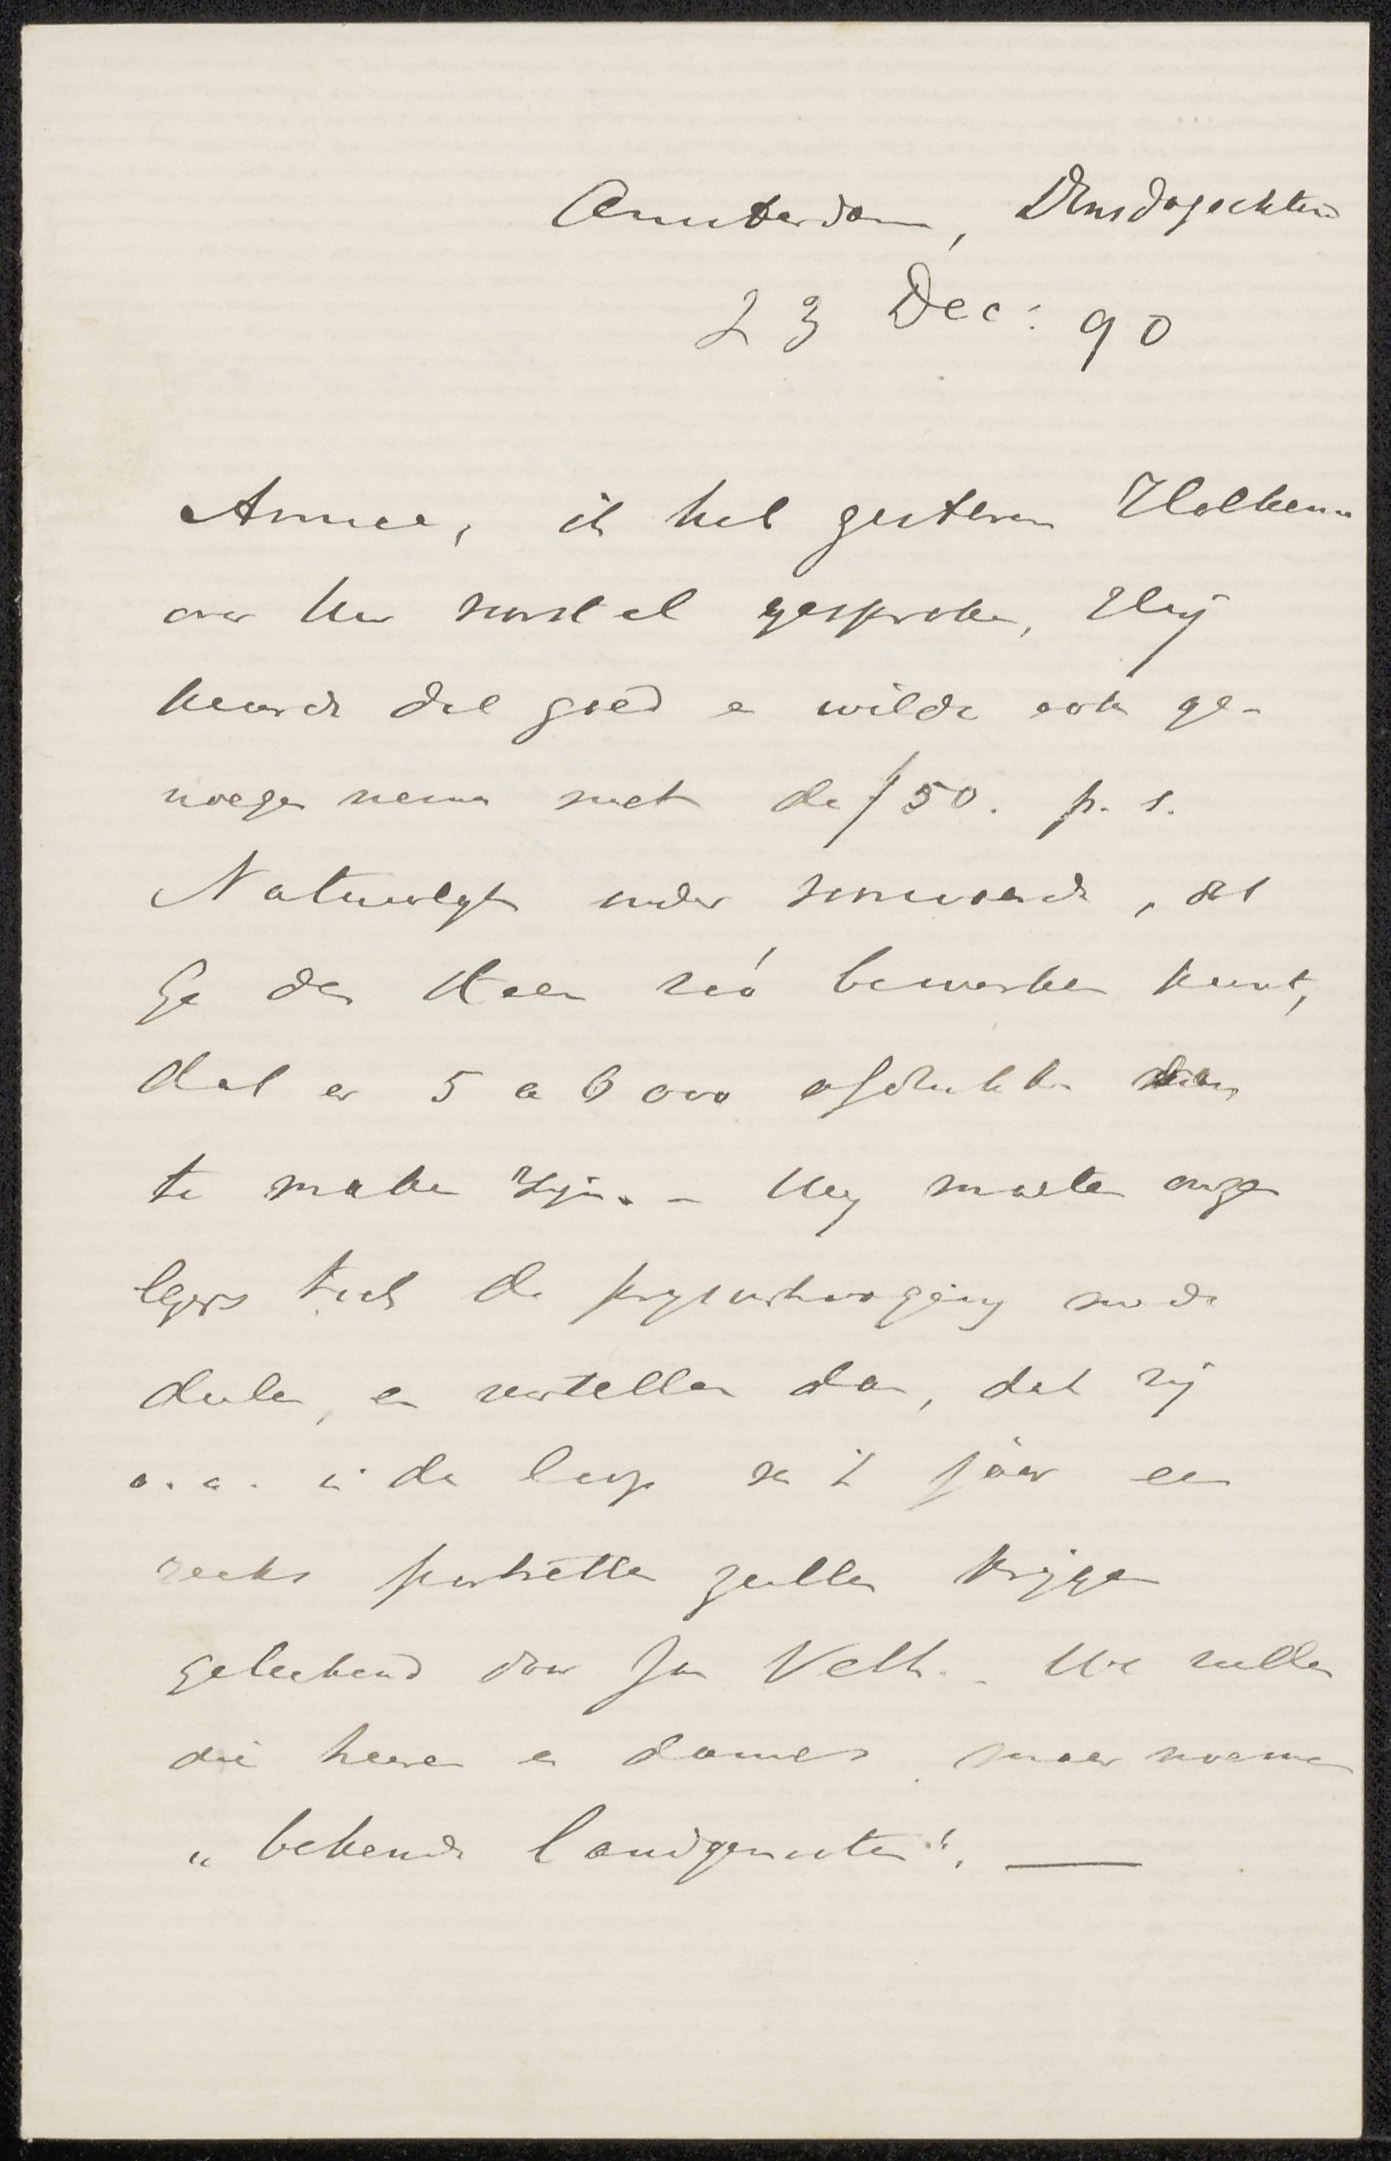 Amsterdam, Dinsdagochtend
23 Dec: 90
Amice, ik heb gisteren Holkema
over Uw voorstel gesproken, Hij
keurde dat goed en wilde ook ge-
noegen nemen met de ƒ50. p. s.
Natuurlijk onder voorwaarde, dat
ge den steen zoó bewerken kunt,
dat er 5 a 6000 afdrukken
te maken zijn. - Wij moeten onzen
lezers toch de prijsverhooging mede
deelen, en vertellen dan, dat zij
o.a. in de loop van 't jaar een
reeks portretten zullen krijgen
geteekend door Jan Veth. - We zullen
die heeren en dames maar noemen
„bekende landgenooten". —